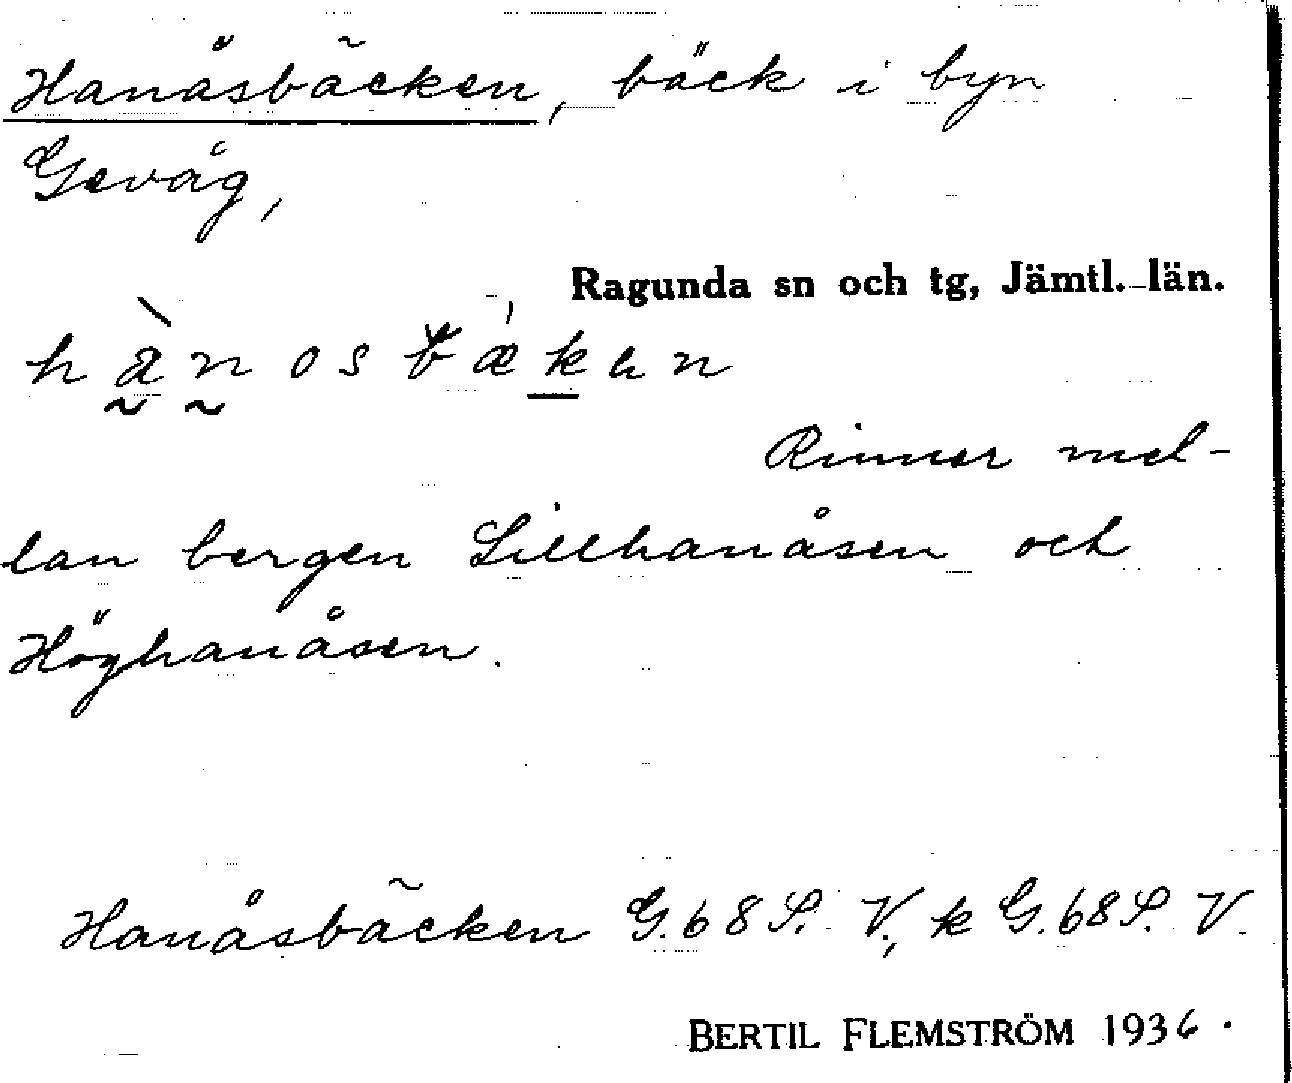 Hanåsbäcken, bäck i byn
Gevåg,
Ragunda sn och tg, Jämtl. län.
Rinner mel-
lan bergen Lillhanåsen och
Höghanåsen.
Hanåsbäcken G. 68 S. V., k G. 68 S. V.
BERTIL FLEMSTRÖM 1936.